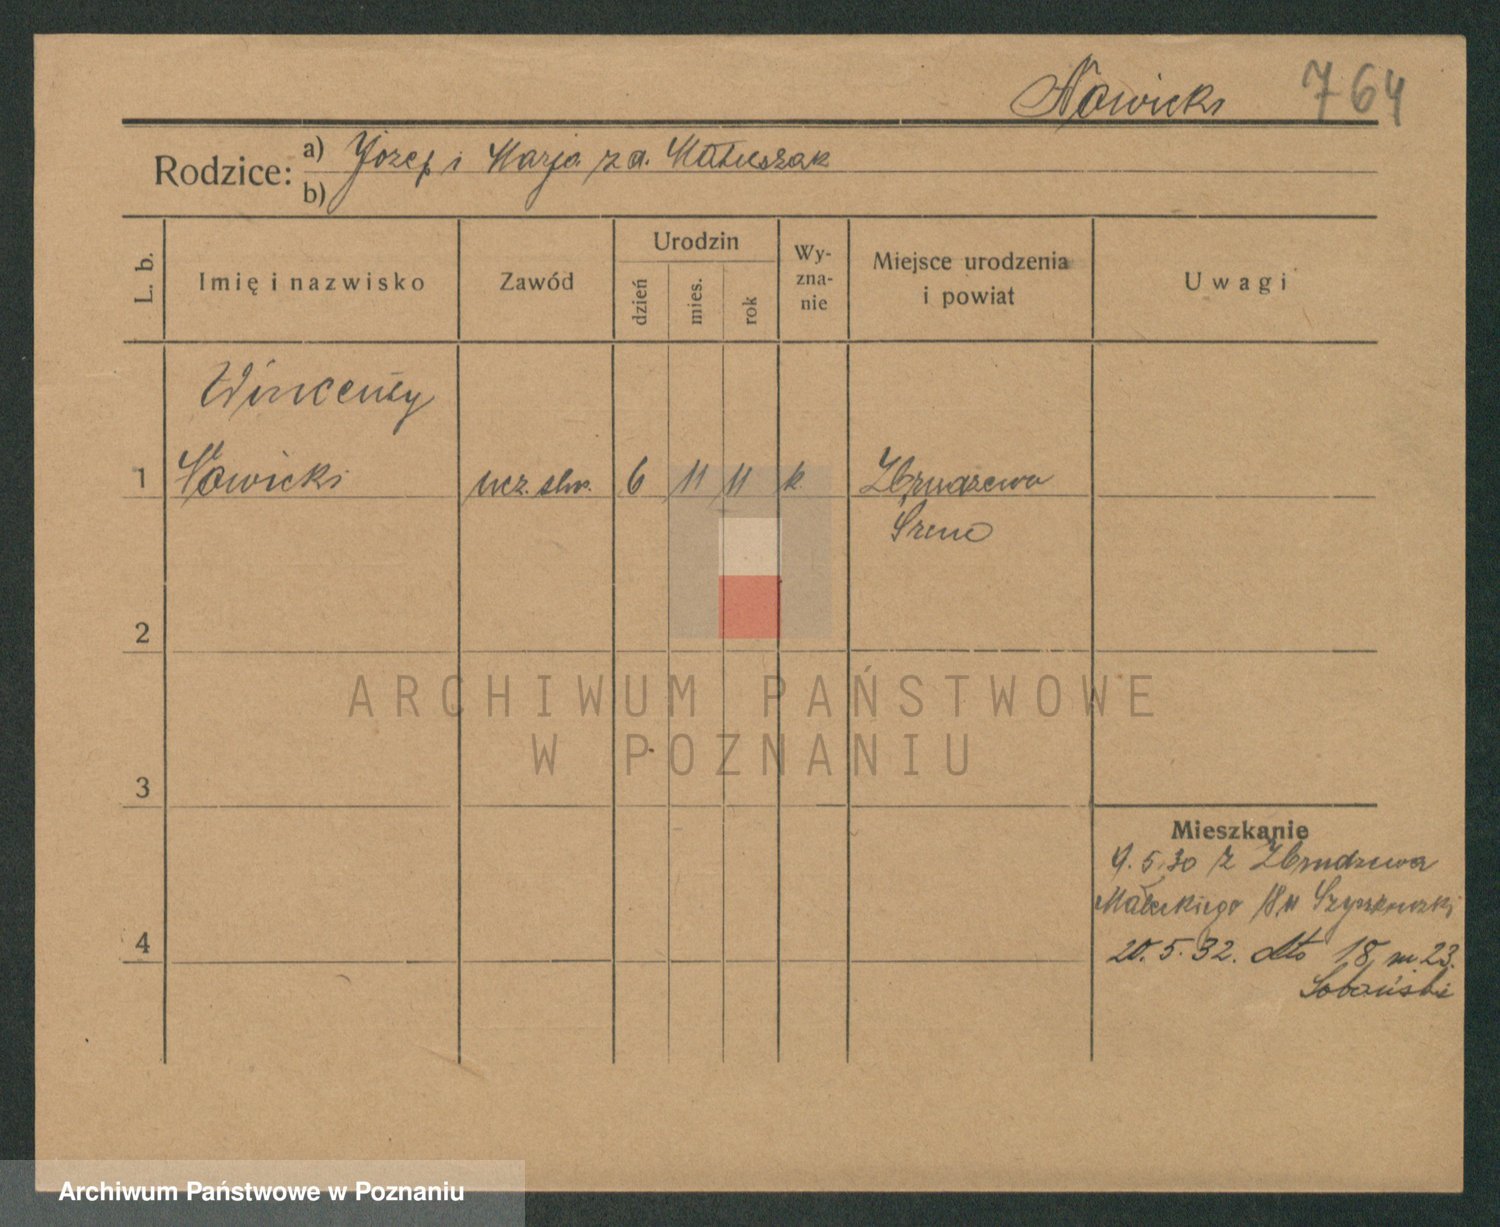 Nowicki 764
Rodzice: a) Józef i Marja z d. Matuszak
b)
L. b. Imię i nazwisko Zawód Urodzin dzień mies. rok Wy-zna-nie Miejsce urodzenia i powiat Uwagi
Wincenty
1 Nowicki ucz. slus. 6 11 11 k. Zbrudzewo
Śrem
2
ARCHIWUM PAŃSTWOWE
W POZNANIU
3
Mieszkanie
9.5.30 z Zbrudzewa
Małeckiego 18 Szyszkowski
4
20.5.32. dto 18 m. 23.
Sobański
Archiwum Państwowe w Poznaniu